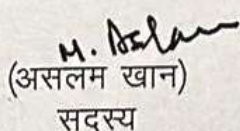 M. Aslam
(असलम खान)
सदस्य